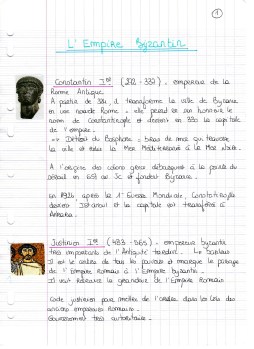 1
L'Empire Byzantin
Constantin Ier (272 - 337) - empereur de la
Rome Antique.
A partir de 324, il transforme la ville de Byzance
en une nouvelle Rome. elle prend en son honneur le
nom de Constantinople et devient en 330 la capitale
de l'empire.
=> Détroit du Bosphore = bras de mer qui traverse
la ville et relie la Mer Méditerranée à la Mer Noire.
A l'origine des colons grecs débarquent à la pointe du
détroit en 657 av JC et fondent Byzance.
En 1924 après la 1° Guerre Mondiale, Constantinople
devient Istanbul et la capitale est transférée à
Ankara.
Justinien Ier (483 - 565) - empereur byzantin
très importants de l'Antiquité tardive.
Il est le centre de tous les pouvoirs et marque le passage
de l'Empire Romain à l'Empire Byzantin.
Il veut retrouver la grandeur de l'Empire Romain
Code justinien pour mettre de l'ordre dans les lois des
anciens empereurs Romains.
Gouvernement très autoritaire.